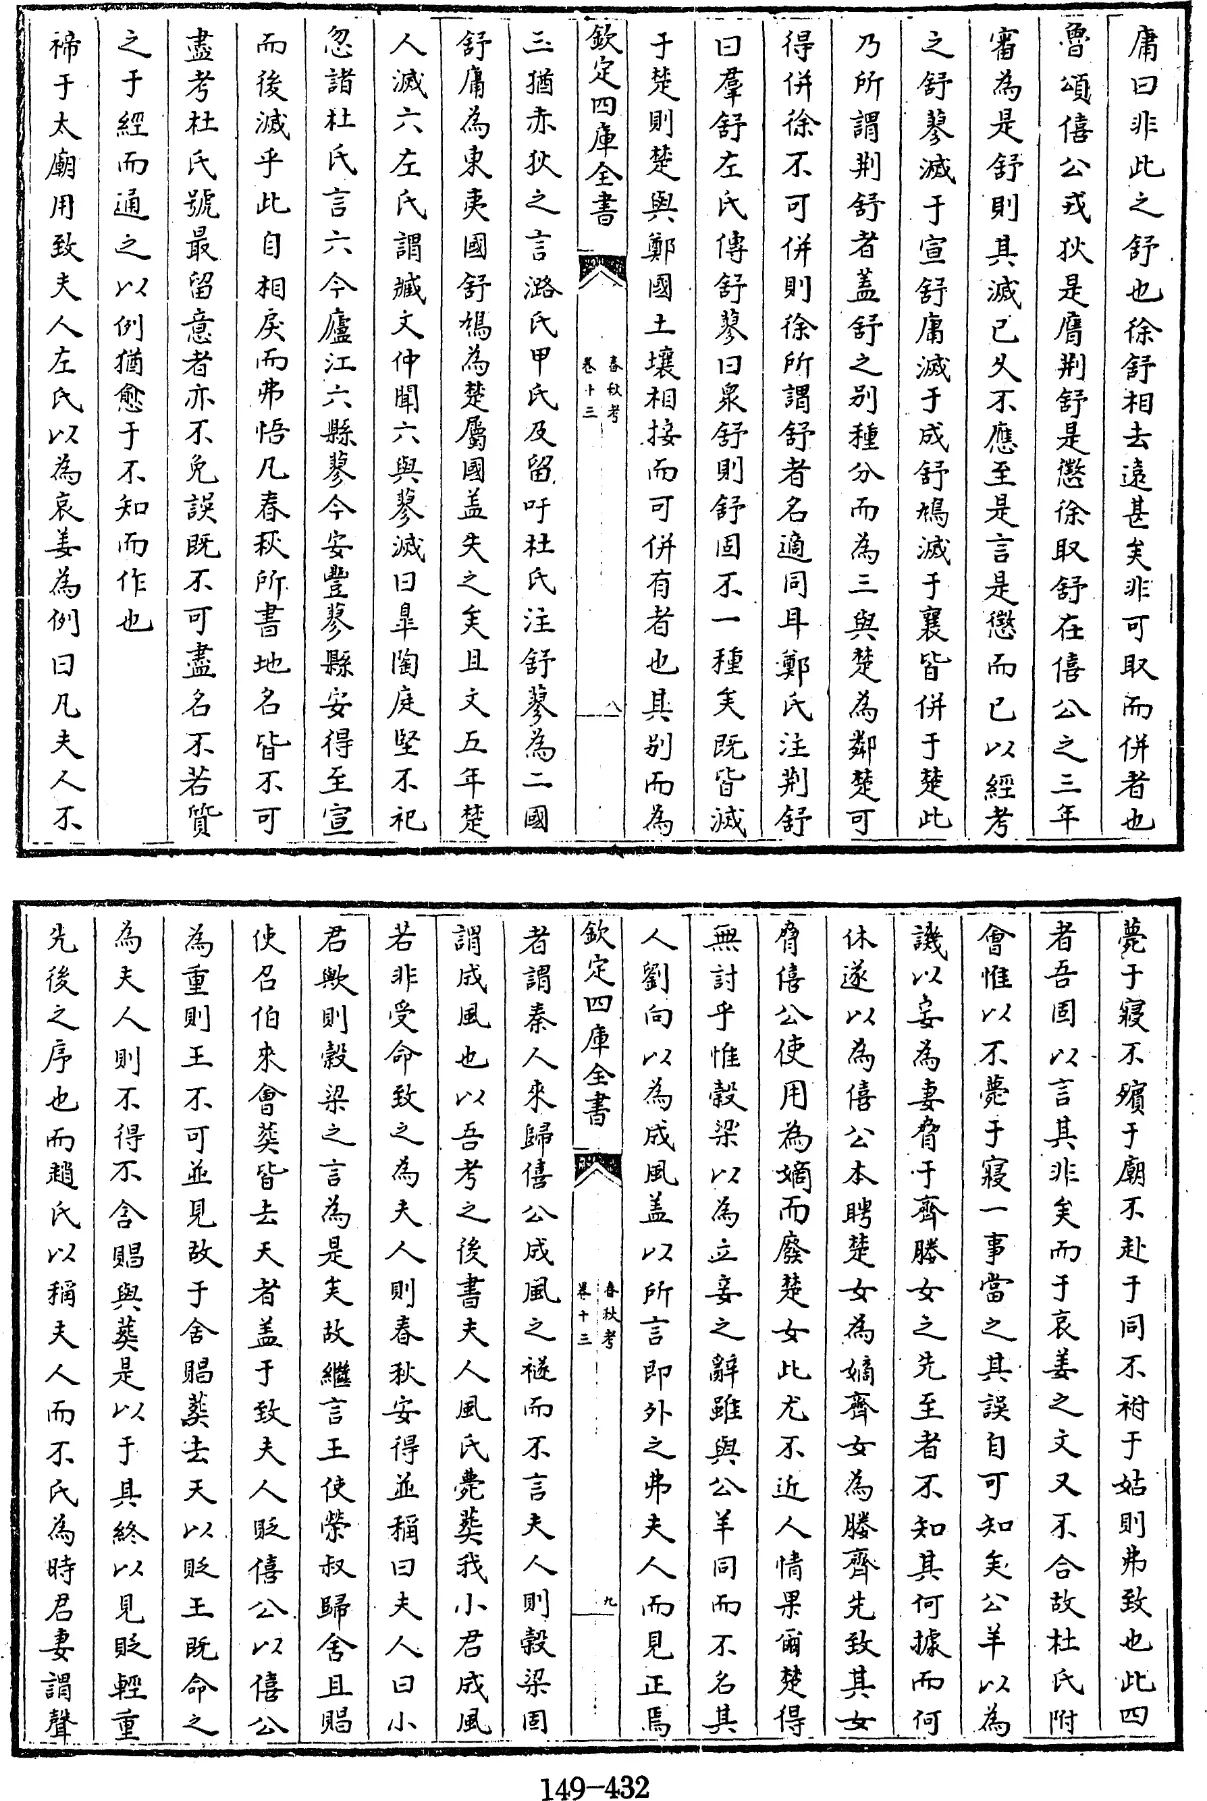 庸曰非此之舒也徐舒相去遠甚矣非可取而併者也
魯頌僖公戎狄是膺荆舒是懲徐取舒在僖公之三年
審為是舒則其滅已久不應至是言是懲而已以經考
之舒蓼滅于宣舒庸滅于成舒鳩滅于襄皆併于楚此
乃所謂荆舒者蓋舒之别種分而為三與楚為鄰楚可
得併徐不可併則徐所謂舒者名適同耳鄭氏注荆舒
曰羣舒左氏傳舒蓼曰衆舒則舒固不一種矣既皆滅
于楚則楚與鄭國土壤相接而可併有者也其别而為
欽定四庫全書
春秋考
卷十三
八
三猶赤狄之言潞氏甲氏及留吁杜氏注舒蓼為二國
舒庸為東夷國舒鳩為楚屬國盖失之矣且文五年楚
人滅六左氏謂臧文仲聞六與蓼滅曰臯陶庭堅不祀
忽諸杜氏言六今廬江六縣蓼今安豐蓼縣安得至宣
而後滅乎此自相戾而弗悟凡春秋所書地名皆不可
盡考杜氏號最留意者亦不免誤既不可盡名不若質
之于經而通之以例猶愈于不知而作也
禘于太廟用致夫人左氏以為哀姜為例曰凡夫人不
薨于寢不殯于廟不赴于同不祔于姑則弗致也此四
者吾固以言其非矣而于哀姜之文又不合故杜氏附
會惟以不薨于寢一事當之其誤自可知矣公羊以為
譏以妾為妻脅于齊媵女之先至者不知其何據而何
休遂以為僖公本聘楚女為嫡齊女為媵齊先致其女
脅僖公使用為嫡而廢楚女此尤不近人情果爾楚得
無討乎惟穀梁以為立妾之辭雖與公羊同而不名其
人劉向以為成風盖以所言即外之弗夫人而見正焉
欽定四庫全書
春秋考
卷十三
九
者謂秦人來歸僖公成風之襚而不言夫人則穀梁固
謂成風也以吾考之後書夫人風氏薨葬我小君成風
若非受命致之為夫人則春秋安得並稱曰夫人曰小
君歟則穀梁之言為是矣故繼言王使榮叔歸含且賵
使召伯來會葬皆去天者盖于致夫人貶僖公以僖公
為重則王不可並見故于含賵葬去天以貶王既命之
為夫人則不得不含賵與葬是以于其終以見貶輕重
先後之序也而趙氏以稱夫人而不氏為時君妻謂聲
149-432